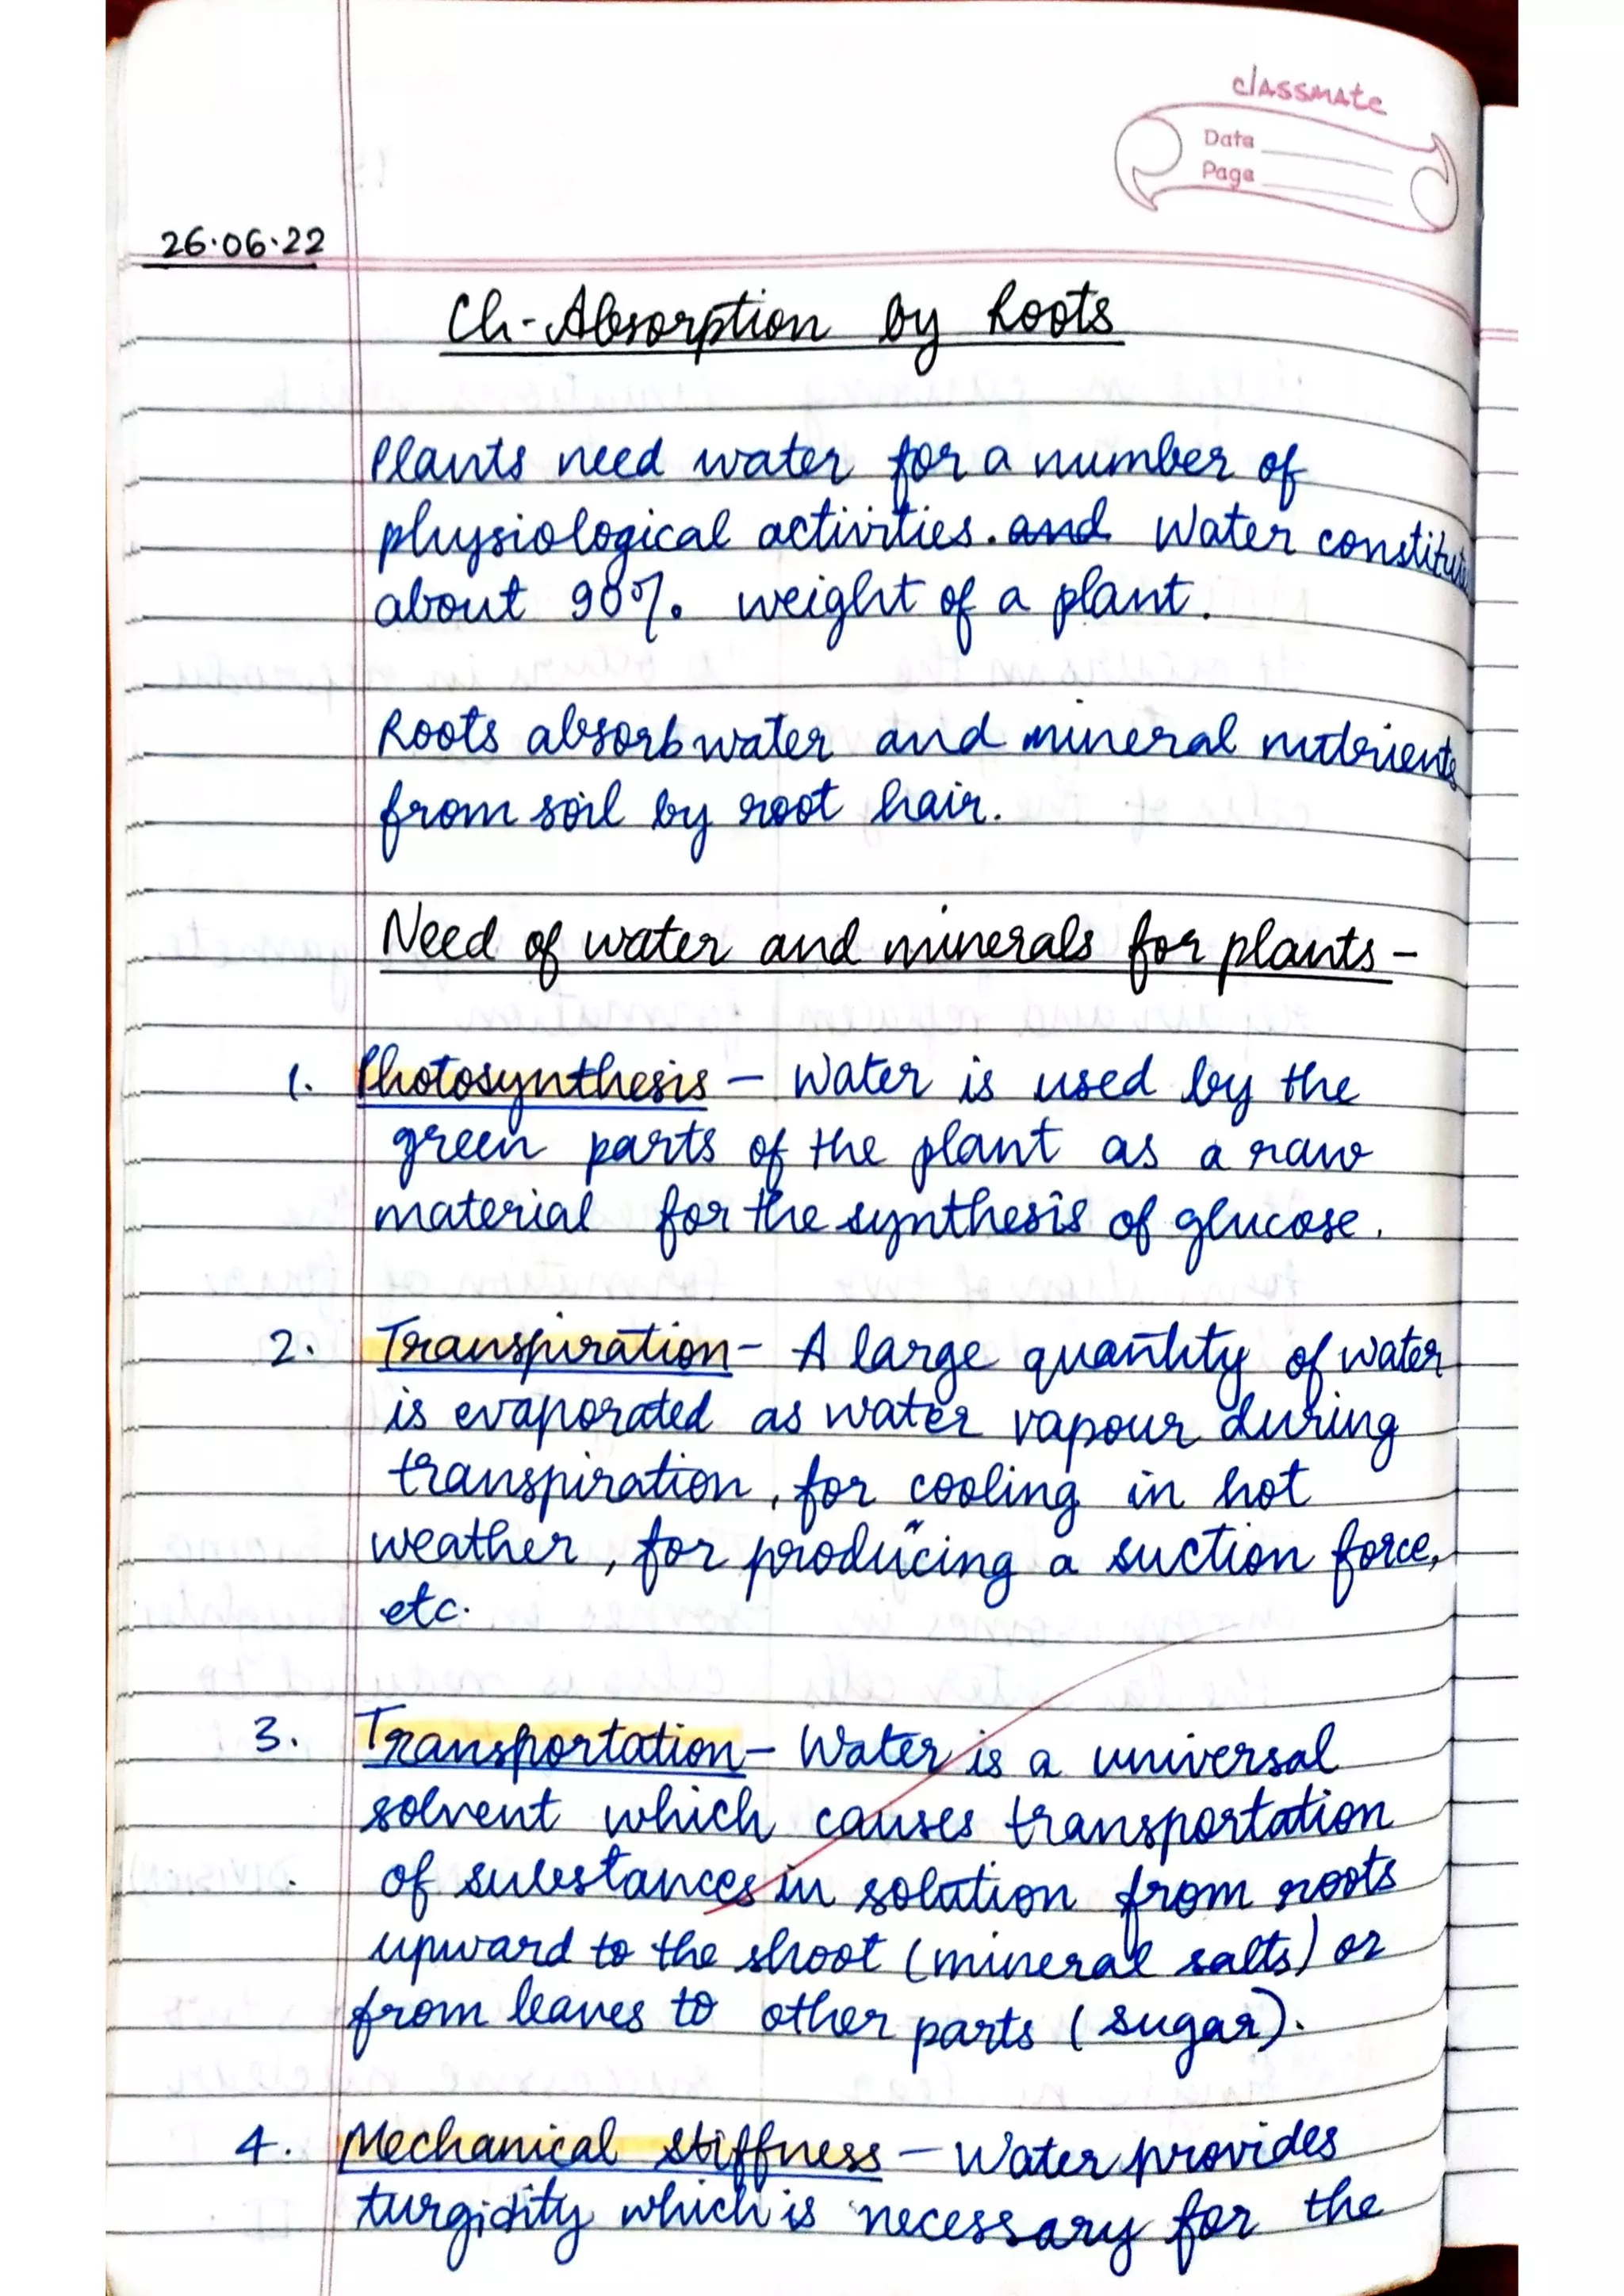 classmate
Date
Page
26.06.22
Ch-Absorption by Roots
Plants need water for a number of
physiological activities. and Water constitutes
about 90% weight of a plant.
Roots absorb water and mineral nutrients
from soil by root hair.
Need of water and minerals for plants -
1. Photosynthesis - Water is used by the
green parts of the plant as a raw
material for the synthesis of glucose.
2. Transpiration - A large quantity of water
is evaporated as water vapour during
transpiration, for cooling in hot
weather, for producing a suction force,
etc.
3. Transportation - Water is a universal
solvent which causes transportation
of substances in solution from roots
upward to the shoot (mineral salts) or
from leaves to other parts (sugar).
4. Mechanical stiffness - Water provides
turgidity which is necessary for the